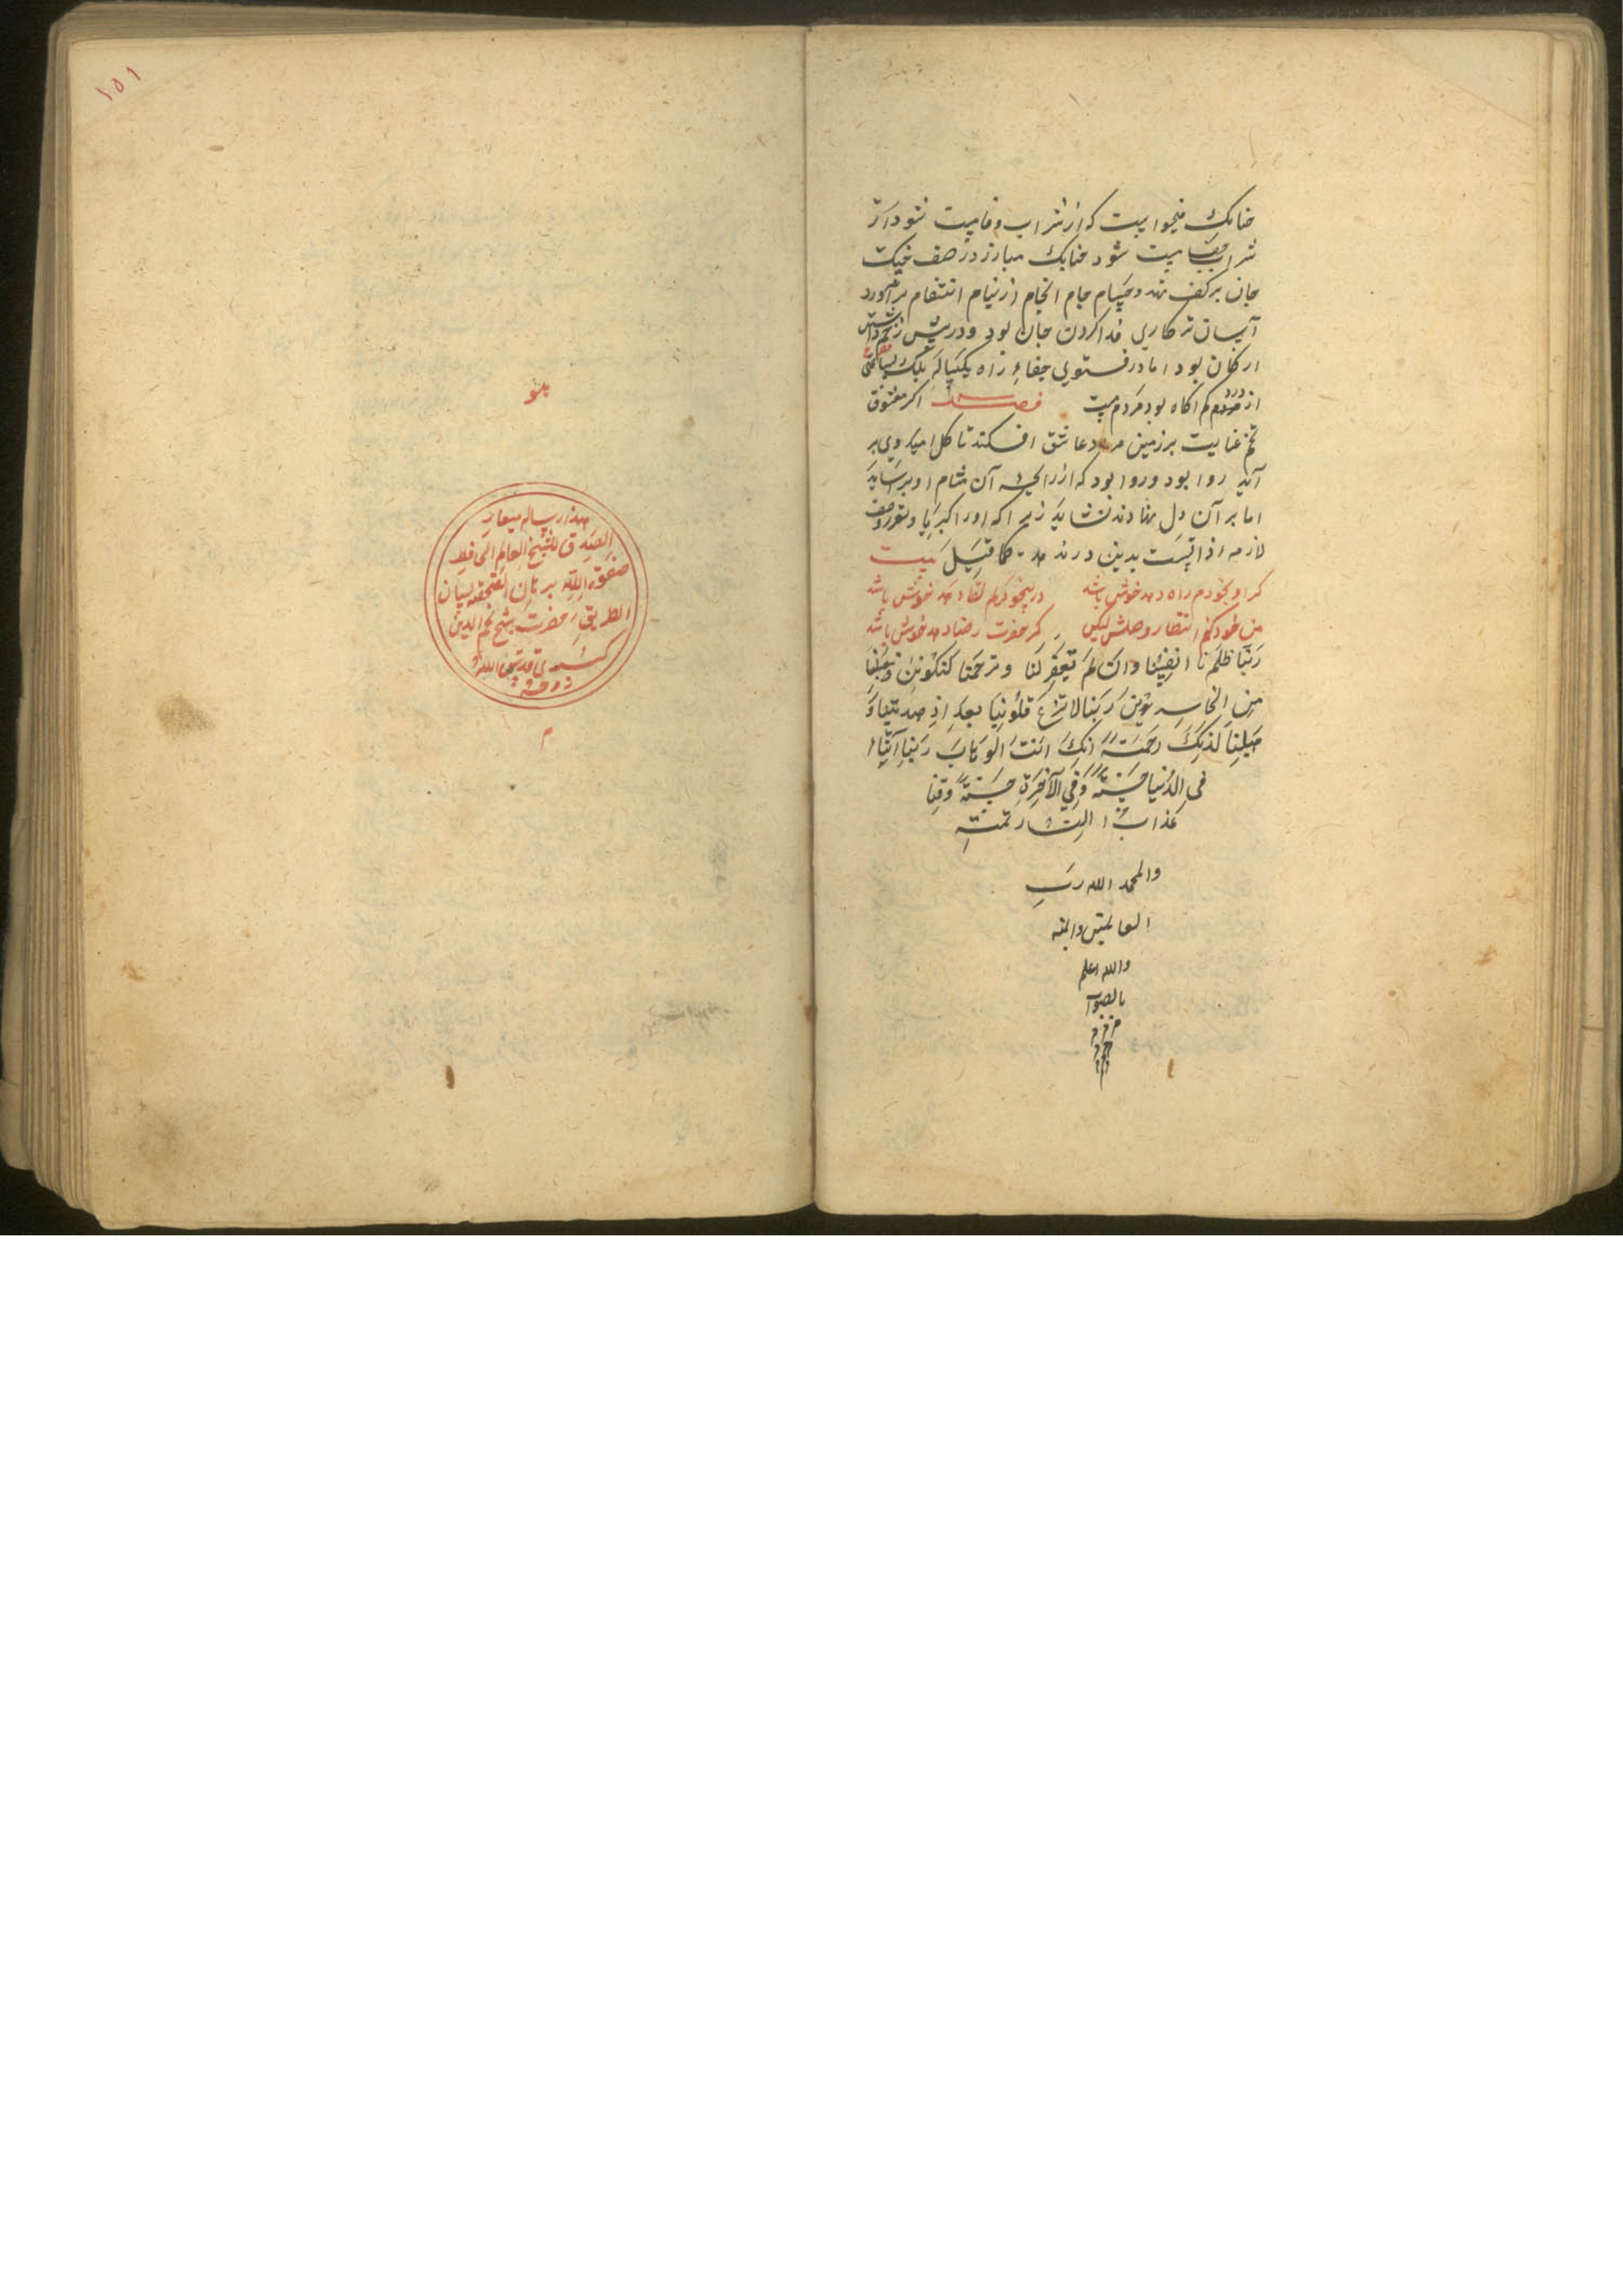 شراب جفا مست شود چنانک مبارز در صف جنک
جان بر کف نهد و حسام جام انجام از نیام انتقام بر آورد
آسان تر کاری فدا کردن جان بود و در پیش
ارکان بود اما در فستوی جفاء راه یکساله بلک
از مردم کم اکاه بود مردم مست فصل اکر معشوق
تخم عنایت بر زمین مراد عاشق افکند تا کل امید وی بر
آید روا بود و روا بود که از رایحه آن مشام او بر ساید
اما بر آن دل نهادند نشاید زیرا که او را کبریا و
لازمه ذاتست بدین در ند هد کما قیل بیت
کر او بخودم راه دهد خوش باشد در بیخودیم لقا دهد خوش باشد
من خود کنم انتظار وصلش لیکن کر حضرت رضا دهد خوش باشد
ربنا ظلمنا انفسنا وان لم تغفر لنا وترحمنا لنکونن
من الخاسرین ربنا لا تزغ قلوبنا بعد اذ هدیتنا و
هبلنا لدنک رحمة انک انت الوهاب ربنا آتنا
فی الدنیا حسنة وفی الآخرة حسنة وقنا
عذاب النار تمت
والحمد الله رب
العالمین والمنه
والله اعلم
بالصواب
١٥١
هو
هذا رساله معیار
الصدق للشیخ العالم الحافظ
صفوة الله برهان الحقیقه لسان
الطریقه حضرت شیخ نجم الدین
کبری قدس الله
روحه
م